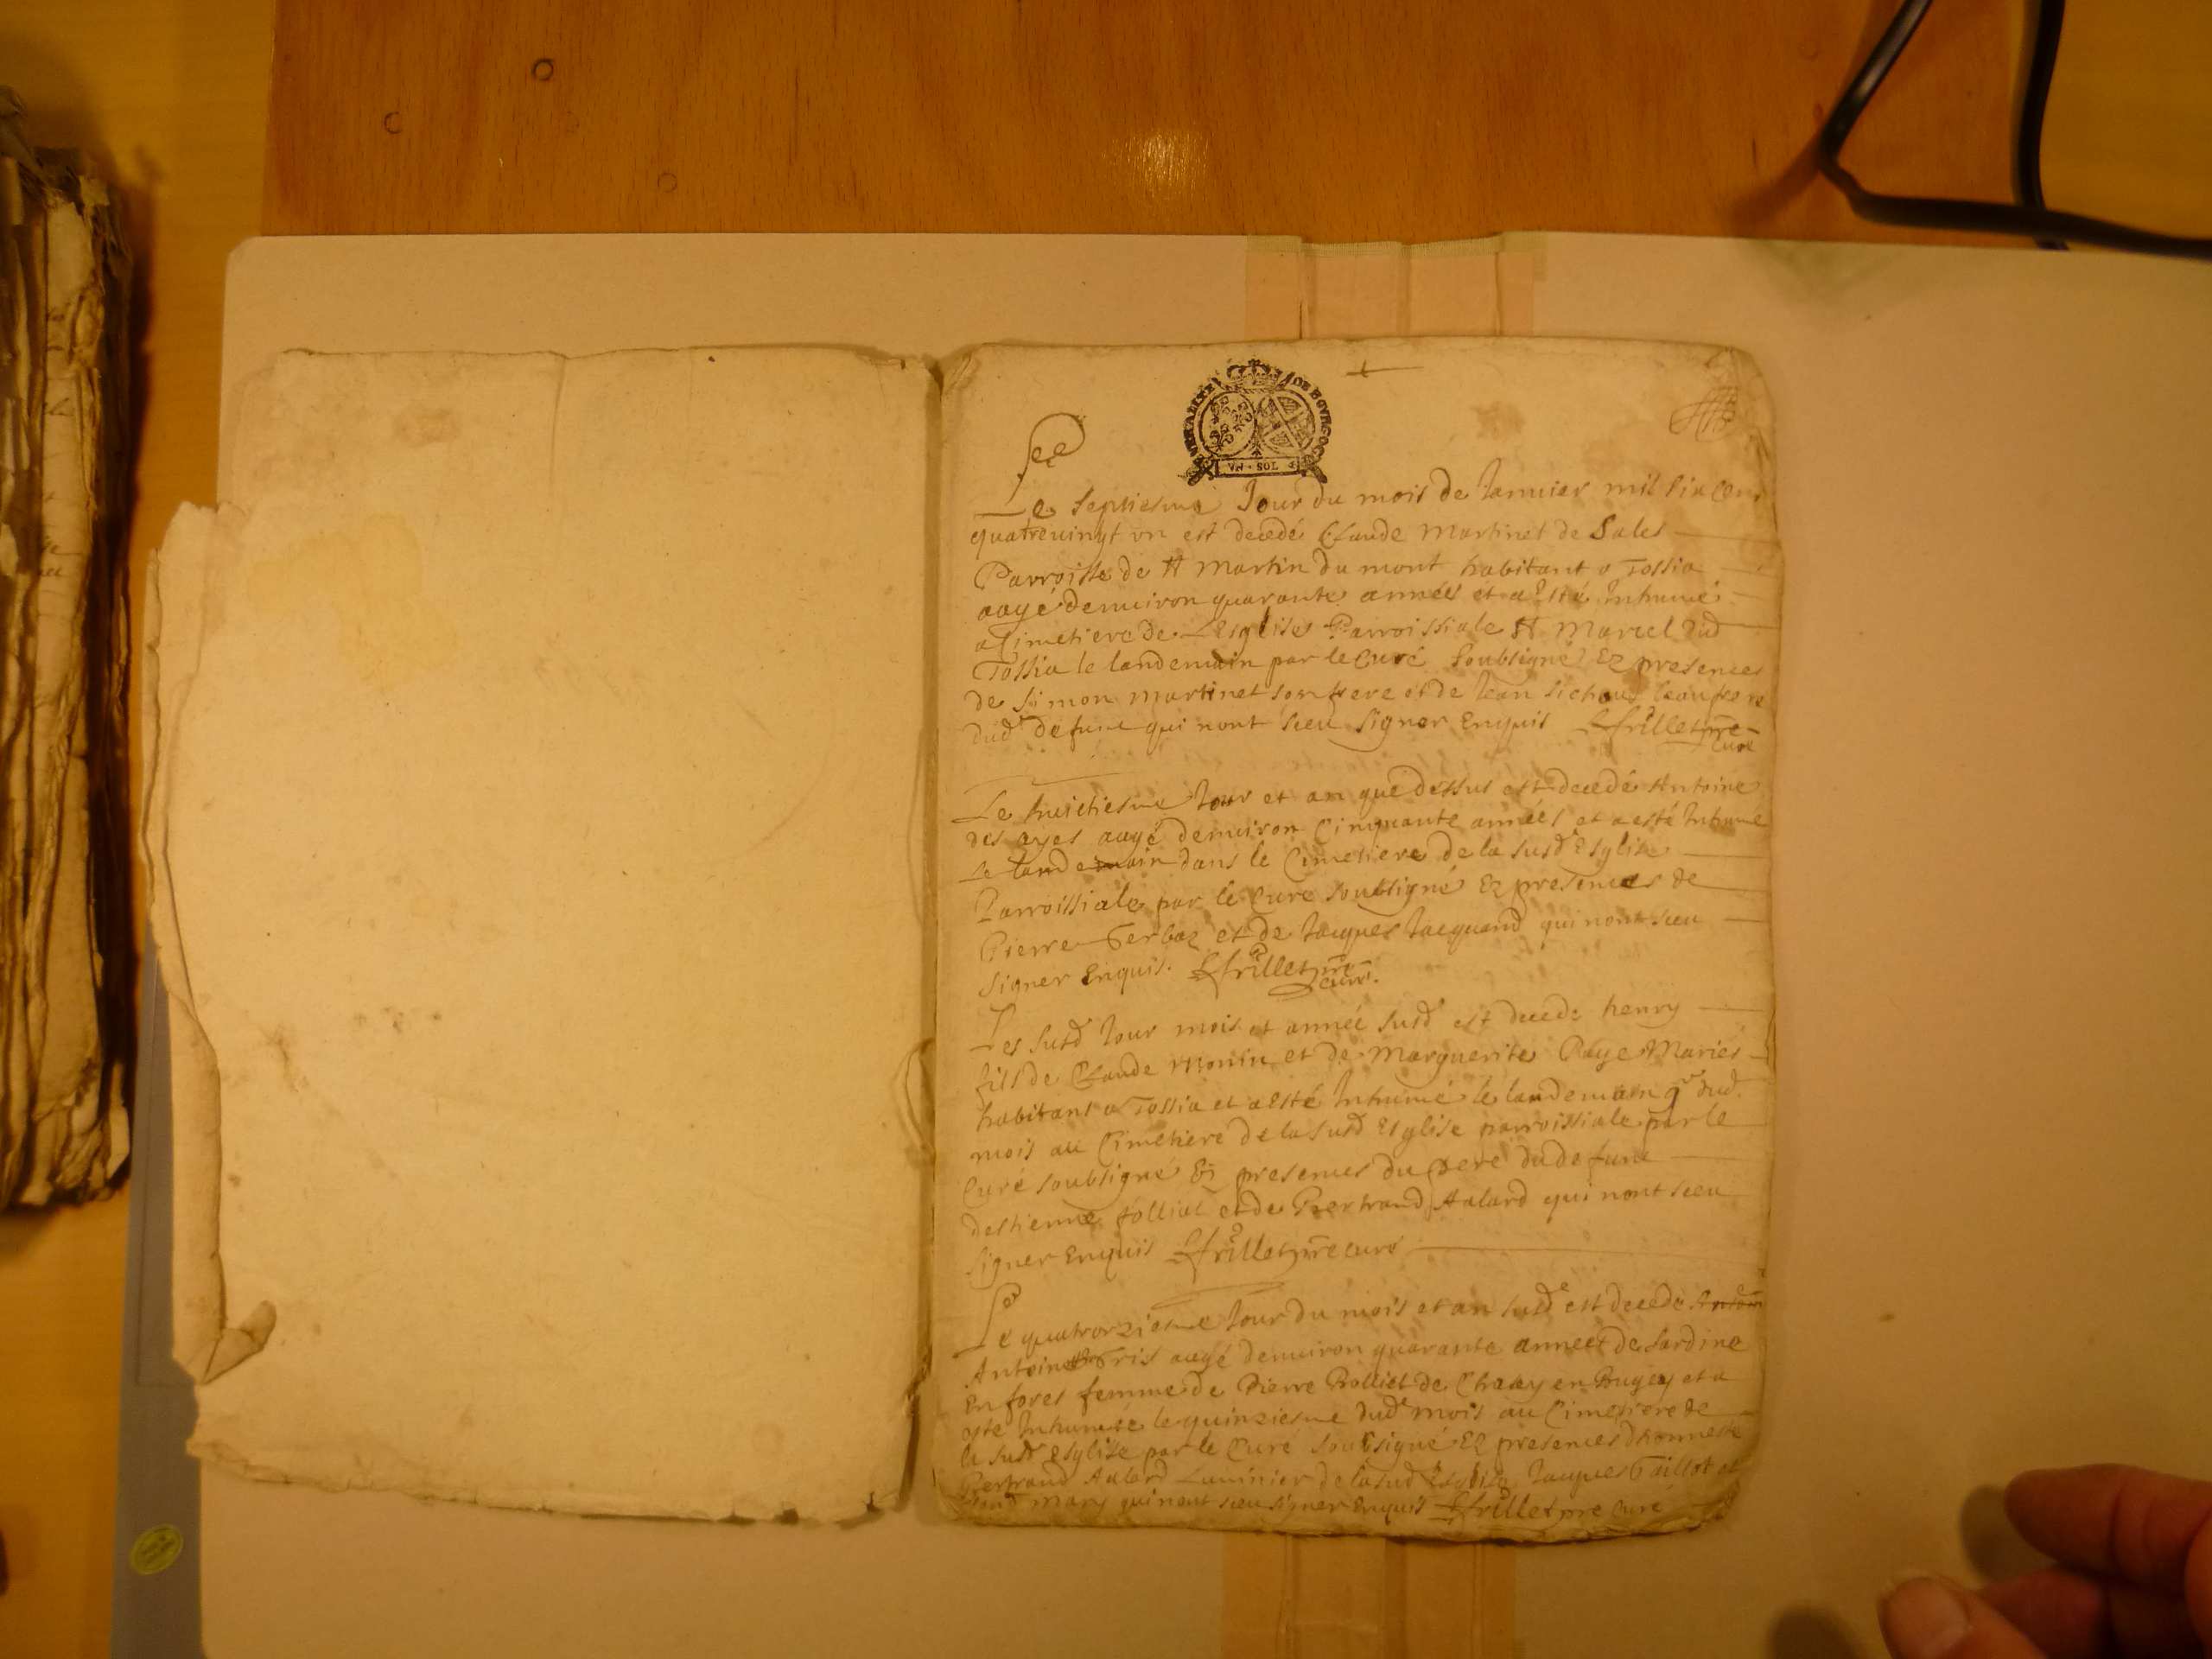 GENERALITE DE BOURGOGNE
VN · SOL
Le Septiesme Jour du mois de Januier mil Six Cens
quatreuingt vn est decedé Claude Martinet de Sales
Parroisse de St Martin du mont habitant a Tossia
aagé denuiron quarante années et a esté Inhumé
a Cimetiere de Lesglise Parroissiale St Marcel dud
Tossia le landemain par le Curé Soubsigné Ez presences
de Simon Martinet son frere et de Jean beaufrere
dud defunt qui nont sceu signer Enquis frillet pre
Curé
Le huictiesme Jour et an que dessus est decedé Antoine
des ayes aagé denuiron Cinquante années et a esté Inhumé
Le landemain dans le Cimetiere de la susd Esglise
Parroissiale par le Curé soubsigné Ez presences de
Pierre Ferbaz et de Jacques Jacquand qui nont sceu
signer Enquis. frillet pre
curé.
Les susd Jour mois et année susd est decedé henry
fils de Claude Monin et de Marguerite Paye Mariés
habitans a Tossia et a esté Inhumé le landemain 9e dud.
mois au Cimetiere de la susd Esglise parroissiale par le
Curé soubsigné Ez presences du Pere du defunt
destienne folliat et de Bertrand Aalard qui nont sceu
signer Enquis frillet pre curé
Le quatorziesme Jour du mois et an susd est decedé
Antoine Gris aagé denuiron quarante années de Sardine
En fores femme de Pierre Rolliet de en Bugey et a
esté Inhumée le quinziesme dud mois au Cimetiere de
la susd Esglise par le Curé soubsigné Ez presences dhonneste
Bertrand Aalard Luminier de la sud Esglise Jacques Gaillot et
mary qui nont sceu signer Enquis frillet pre Curé